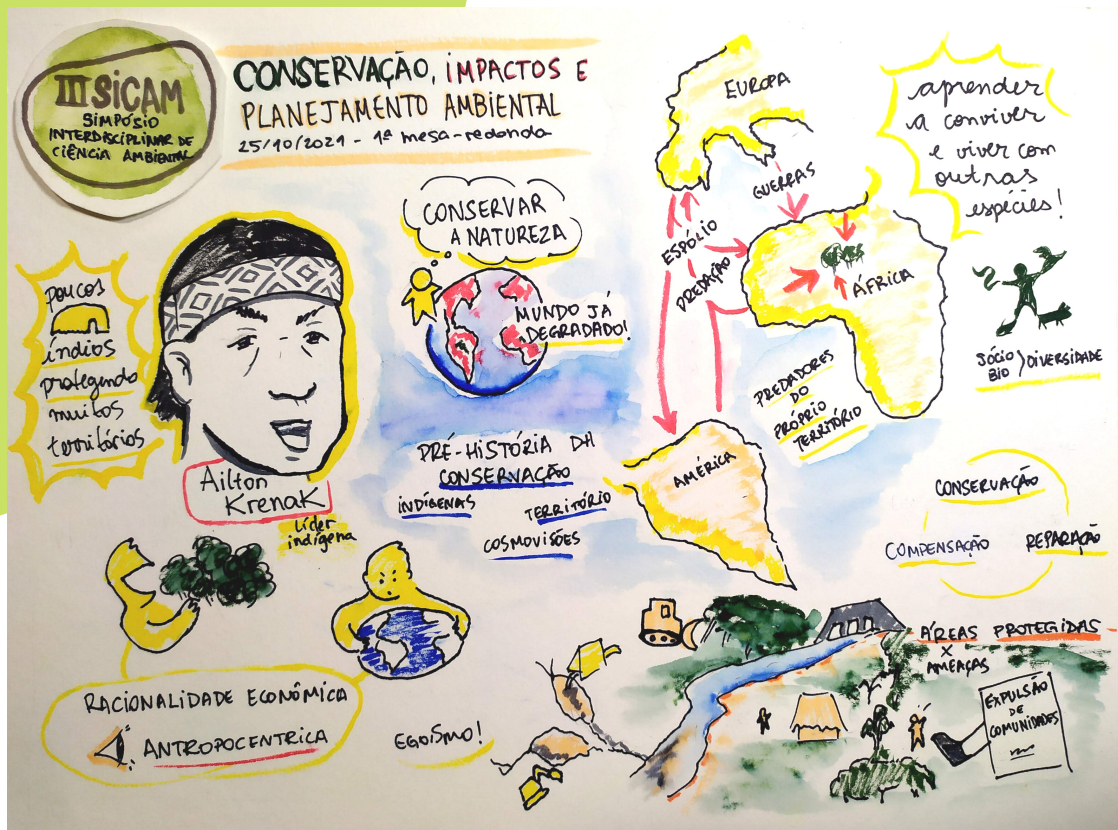 III SiCAM
SIMPÓSIO
INTERDISCIPLINAR DE
CIÊNCIA AMBIENTAL
CONSERVAÇÃO, IMPACTOS E
PLANEJAMENTO AMBIENTAL
25/10/2021 - 1ª mesa-redonda
poucos
índios
protegendo
muitos
territórios
Ailton
Krenak
Líder
indígena
CONSERVAR
A NATUREZA
MUNDO JÁ
DEGRADADO!
PRÉ-HISTÓRIA DA
CONSERVAÇÃO
INDÍGENAS
TERRITÓRIO
COSMOVISÕES
EUROPA
GUERRAS
ESPÓLIO
PREDAÇÃO
ÁFRICA
AMÉRICA
PREDADORES
DO
PRÓPRIO
TERRITÓRIO
aprender
a conviver
e viver com
outras
espécies!
SÓCIO
BIO
DIVERSIDADE
CONSERVAÇÃO
COMPENSAÇÃO
REPARAÇÃO
RACIONALIDADE ECONÔMICA
ANTROPOCENTRICA
EGOÍSMO!
ÁREAS PROTEGIDAS
X
AMEAÇAS
EXPULSÃO
DE
COMUNIDADES